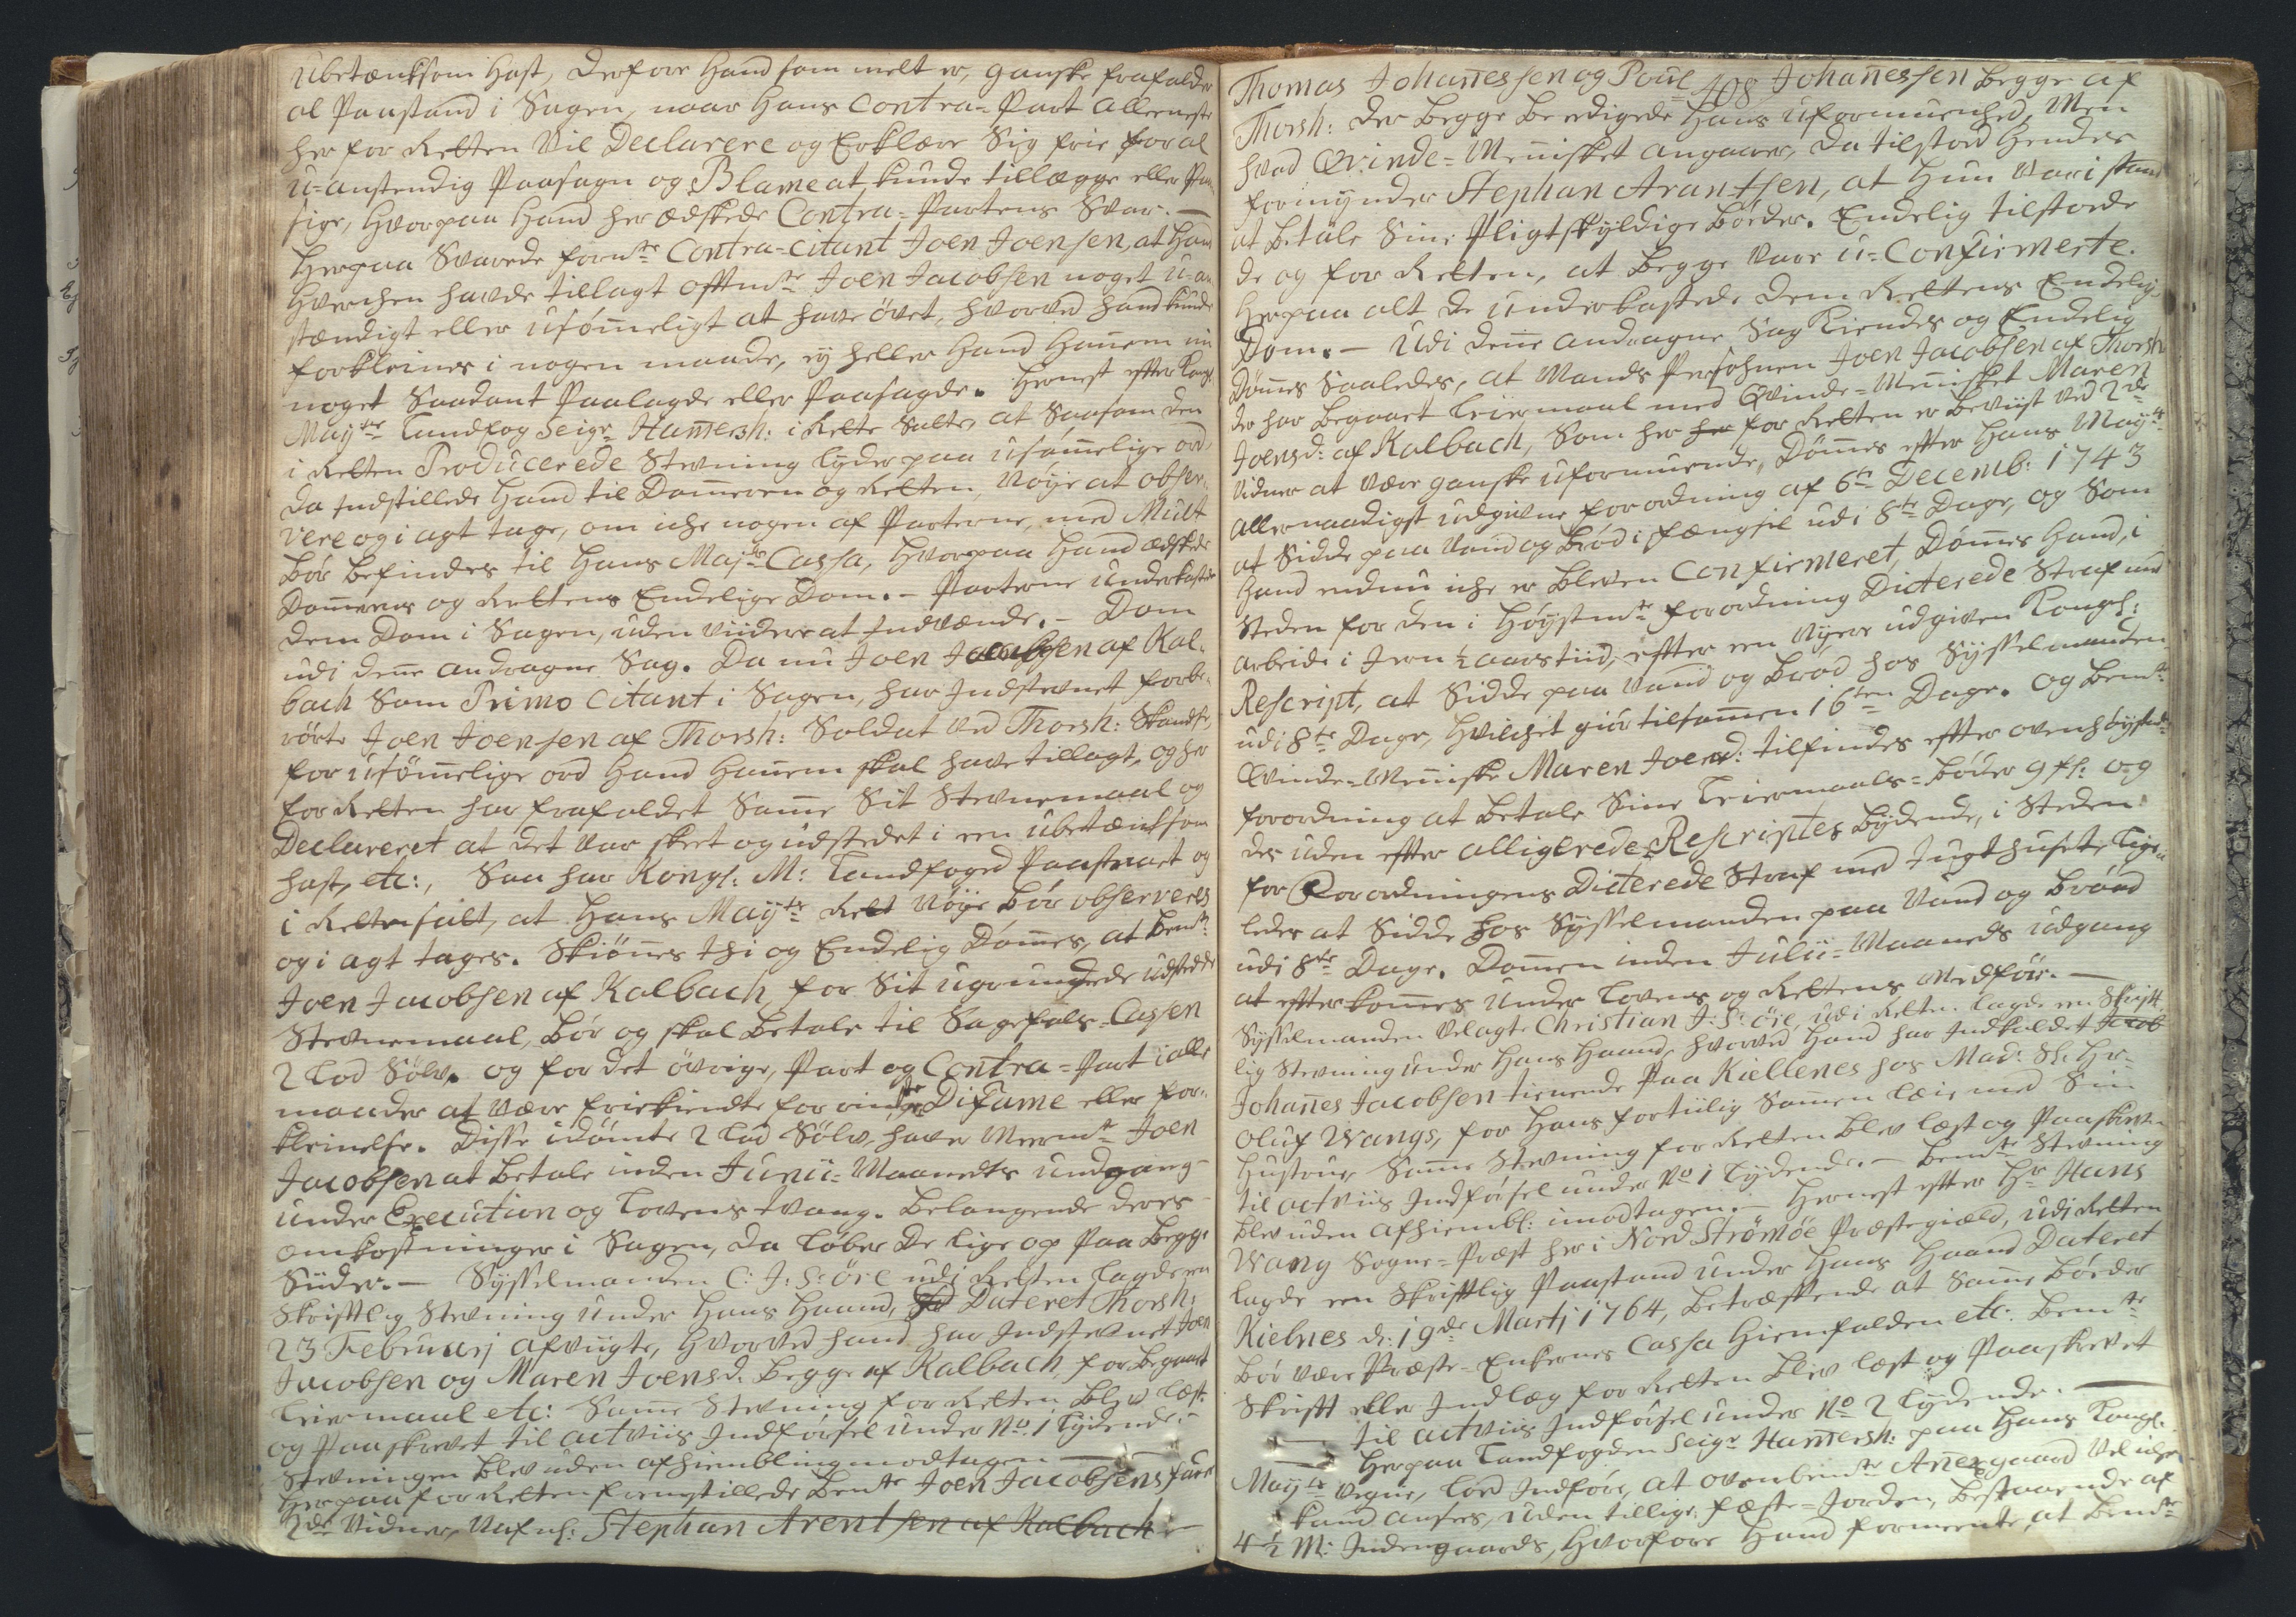 ubetænksom Hast, derfore Hand som melt er, ganske frafalder
al Paastand i Sagen, naar Hans Contra-Part alleeneste
her for Retten vil Declarere og Erklære Sig frie for al
u-anstendig Paasagn og Blame at kunde tillægge eller Paa
sige, Hvorpaa Hand her ædskede Contra-Partens Svar. —
Herpaa Svarede forn.te Contra-Citant Joen Joensen, at Hand
Hverchen havde tillagt offtm.te Joen Jacobsen noget u-an
stændigt eller usömeligt at have övet, hvorved hand kunde
forkleines i nogen maade, ey heller Hand Hanem im
noget Saadant Paalagde eller Paasagde. Hernest efter Kongl.
May.ts Landfog Seig.r Hamersh: i Rette Satte, at Saasom den
i Retten Producerede Stevning lyder paa usömelige ord,
da Indstillede Hand til Domeren og Retten, Nöye at obser-
vere og i agt tage, om iche nogen af Parterne, med Mült
bör befindes til Hans May.ts Cassa, Hvorpaa Hand ædskede
Domerens og Rettens Endelige Dom. — Parterne underkastede
dem Dom i Sagen, uden viidere at Indvænde. — Dom
udi dene andragne Sag. Da nu Joen Jacobsen af Kal-
bach Som Primo Citant i Sagen, har Indstevnet forbe-
rörte Joen Joensen af Thorsh: Soldat ved Thorsh: Skandse,
for usömelige ord Hand Hanem skal have tillagt, og her
for Retten har frafaldet Same Sit Stevnemaal og
Declareret at det var skeet og udstedet i een ubetænksom
hast, etc:, Saa har Kongl: M: Landfoged Paastaaet og
i Rettesatt, at Hans May.ts Rett Nöye bör observeres
og i agt tages. Skiönes thi og Endelig Dömes, at bem.te
Joen Jacobsen af Kalbach for Sit ugrundede udstedde
Stevnemaal, bör og skal betale til Sagefals-Cassen
2 Lod Sölv. og for det övrige, Part og Contra-Part i alle
maader at være friekiendte for ringeste Difame eller for-
kleinelse. Disse idömte 2 Lod Sölv, haver Meerm.te Joen
Jacobsen at betale inden Junii-Maaneds Undgang
under Execution og Lovens tvang. Belangende deres
omkostninger i Sagen, da löber de lige op Paa begge
Siider. — Sysselmanden C: J: S: öre udi Retten lagde een
Skrifftlig Stevning under Hans Haand, Dateret Thorsh:
23 Februarj afvigte, Hvorved hand har Indstevnet Joen
Jacobsen og Maren Joensd. begge af Kalbach, for begaaet
Leiermaal etc: Same Stevning for Retten blev læst
og Paaskrevet til actviis Indförsel under No. 1 lydende.
Stevningen blev uden afhiembling modtagen —
Herpaa for Retten fremstillede bem.te Joen Jacobsens fader
2de Vidner, Nafnl: Stephan Arentsen af Kalbach —
408
Thomas Johanessen og Poul Johanessen begge af
Thorsh: der begge beedigede Hans uformuenhed, Men
hvad Qvinde-Menisket angaaer, da tilstod hendes
formynder Stephan Arantsen, at hun var i stand
at betale Sine Pligtskyldige böeder. Endelig tilstode
de og for Retten, at begge vare u-Confirmerte.
Herpaa alt de underkastede dem Rettens Endelig
Dom. — Udi dene andragne Sag Kiendes og Endelig
Dömes Saaledes, at Mands Persohnen Joen Jacobsen af Thorsh:
der har begaaet Leiermaal med Qvinde-Menisket Maren
Joensd: af Kalbach, Som her her for Retten er beviist ved 2de
Vidner at være ganske uformuende, Dömes efter Hans May.ts
allernaadigst udgivne forordning af 6te Decemb: 1743
at Sidde paa Vand og Bröd i fængsel udi 8te Dage, og Som
Hand endnu iche er bleven Confirmeret, Dömes Hand, i
Steden for den i Höystm.te forordning Dicterede Straf med
arbeide i Jern ½ aars tiid, efter een Nyere udgiven Kongl:
Rescript, at Sidde paa Vand og Bröd hos Sysselmanden
udi 8te Dage, Hvilchet giör tilsamen 16ten Dage. og bem.te
Qvinde-Meniske Maren Joensd: tilfindes effter ovenhöystm.te
forordning at betale Sine Leiermaals-böeder 9 fl: og
des uden efter alligerede Rescriptes bydende, i Steden
for Forordningens Dicterede Straf med Tugthuset, lige-
ledes at Sidde hos Sysselmanden paa Vand og Bröd
udi 8te Dage. Domen inden Julii-Maaneds udgang
at efterkomes under Lovens og Rettens Medför. —
Sysselmanden Velagte Christian J: S: öre, udi Retten lagde een Skrifft
lig Stevning under Hans Haand, hvorved Hand har Indkaldet Jacob
Johanes Jacobsen tienende Paa Kiellenes hos Mad: Sl: Hr
Oluf Wangs, for Hans fortiilig Samen læie med Sin
Hustrue, Same Stevning for Retten blev læst og Paaskreven
til actviis Indförsel under No 1 lydende. — bem.te Stevning
blev uden afhiembl: imodtagen. — Hernest efter Hr Hans
Wang Sogne-Præst her i Nord Strömöe Præstegield, udi Retten
lagde een Skrifftlig Paastand under Hans Haand Dateret
Kielnes d: 19de Martj 1764, betræffende at Same böeder
bör være Præste-Enkernes Cassa hiemfalden etc: bem.te
Skrifft eller Indlæg for Retten blev læst og Paaskrevet
— til actviis Indförsel under No 2 lydende. —
Herpaa Landfogden Seig.r Hamersh: paa Hans Kongl.
May.ts vegne, lod Indföre, at ovenbem.te Anexgaard vel iche
kand ansees, uden tillige fæste-Jorden, bestaaende af
4½ M: Indengaards, Hvorfore Hand formeente, at bem.te